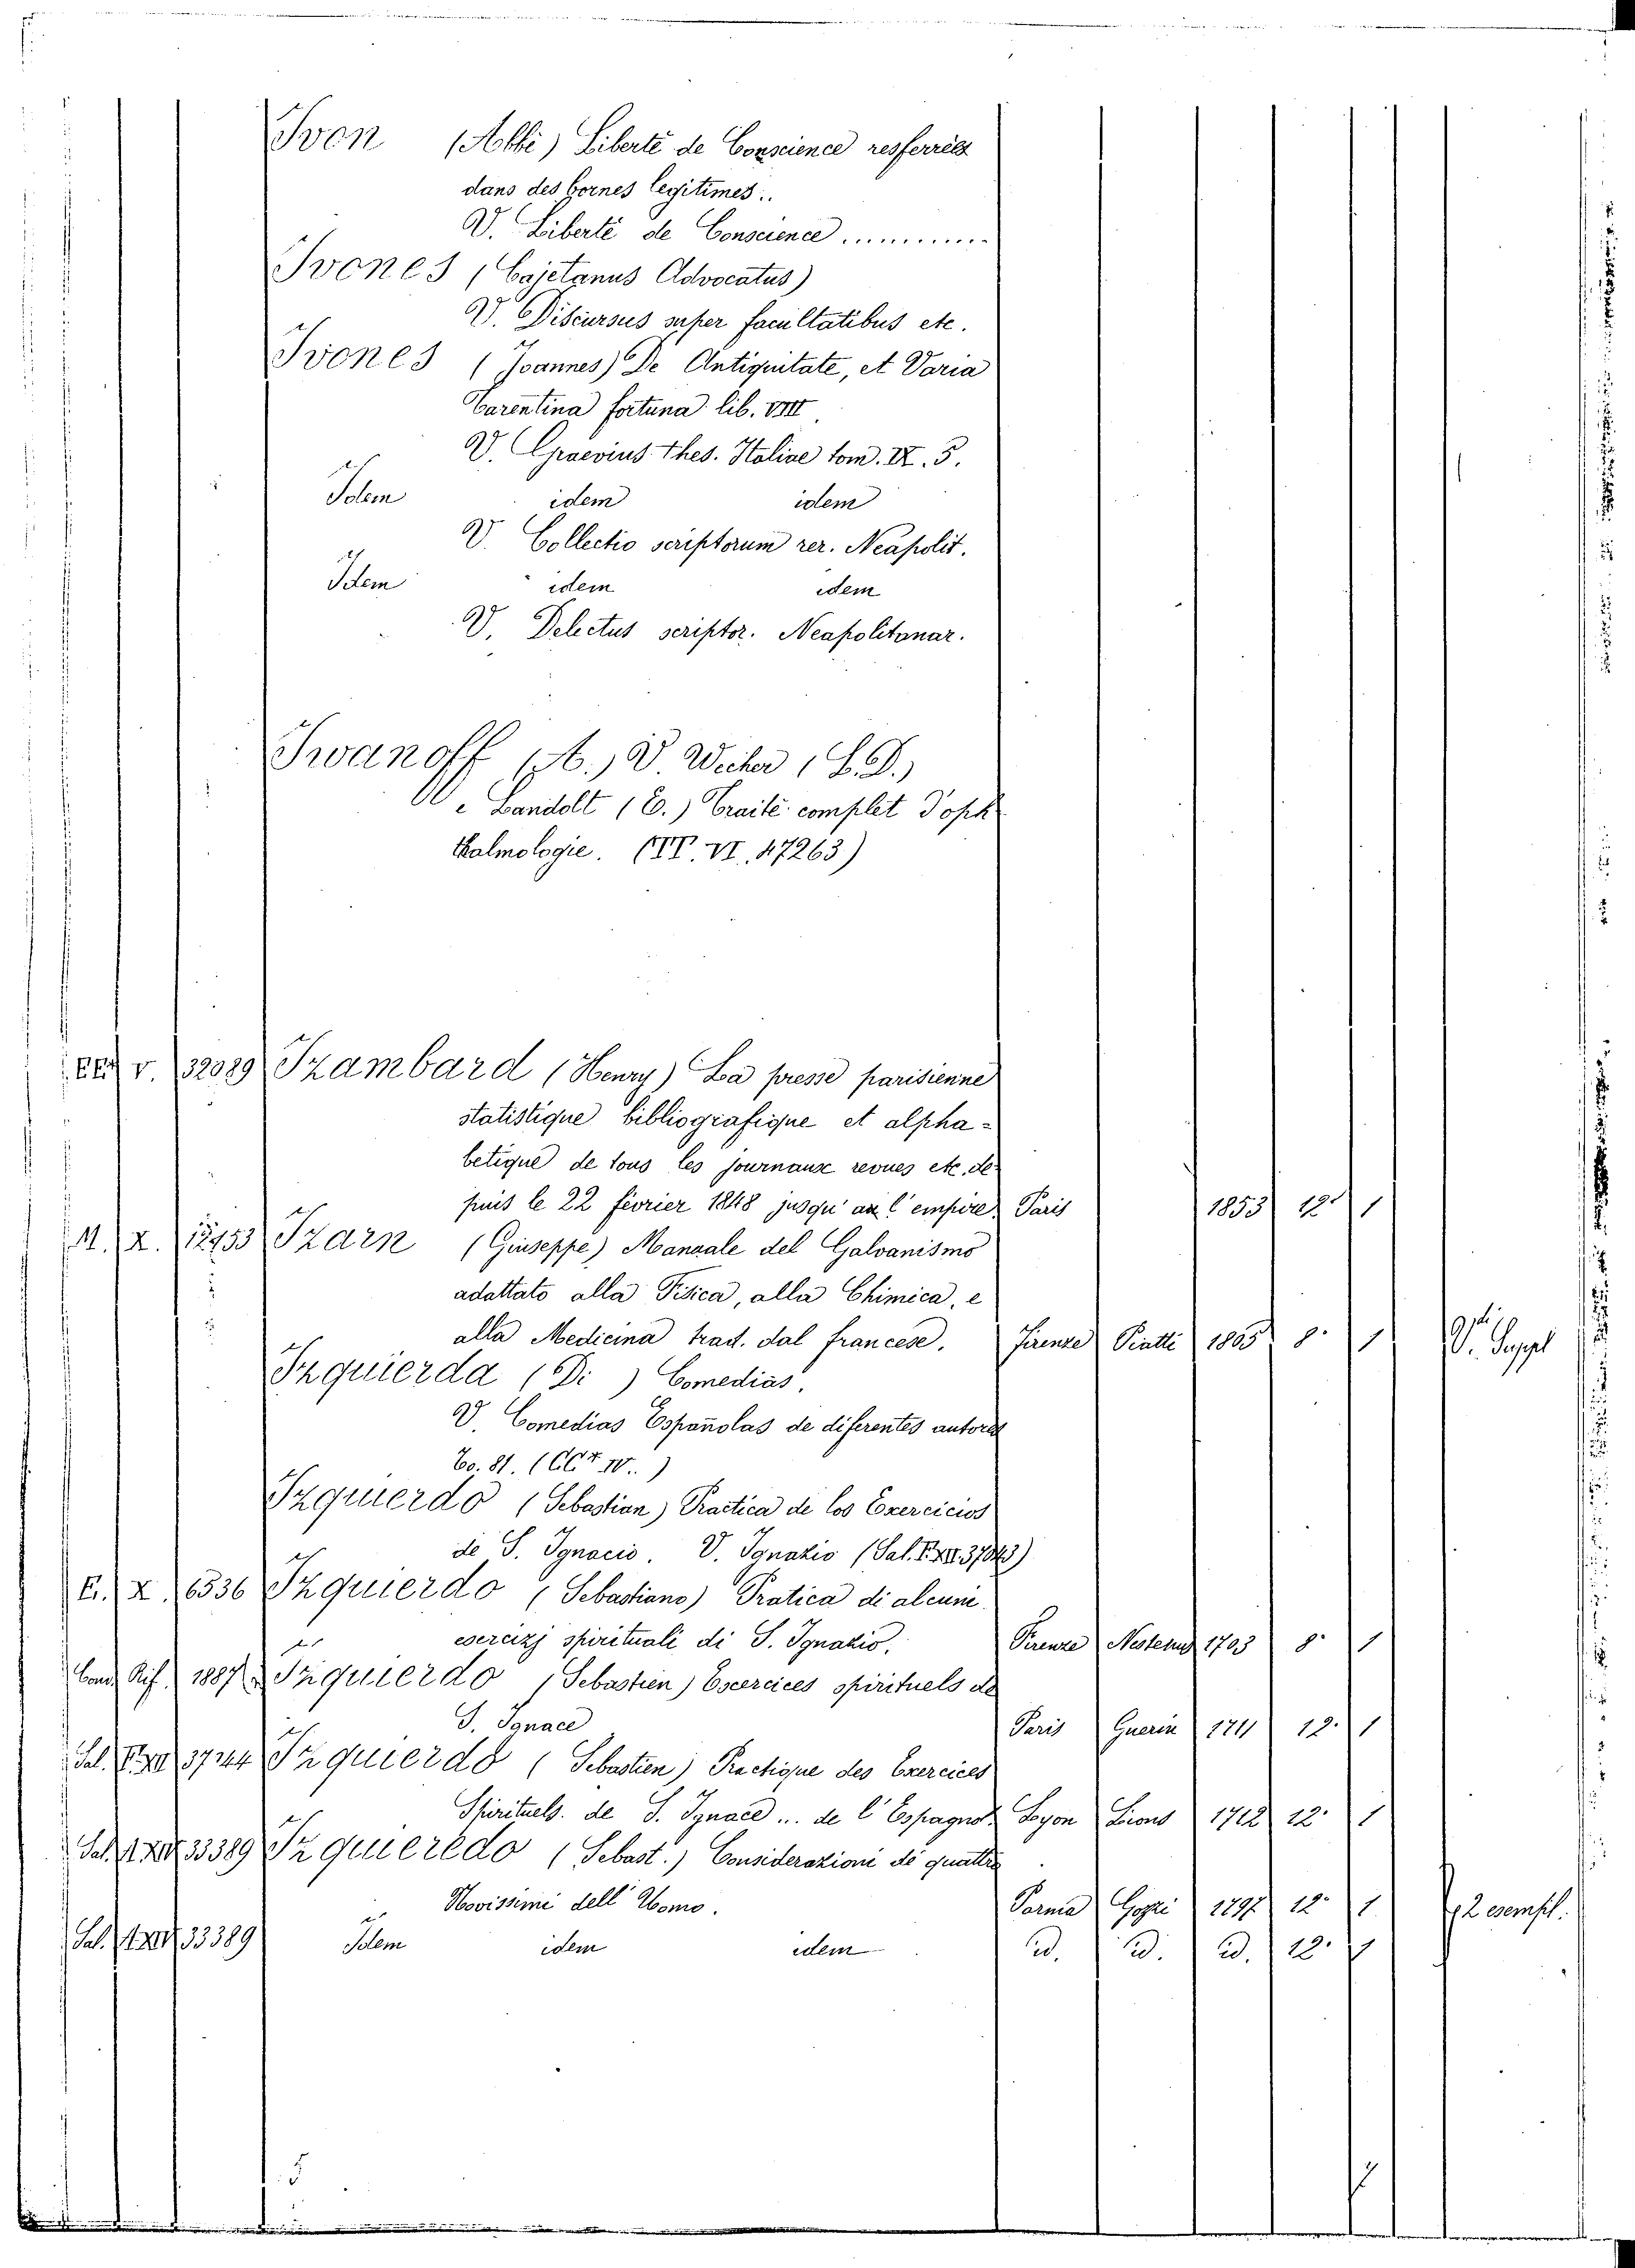 Ivon (Abbé) Liberté de Conscience resferrées
dans des bornes legitimes..
V. Liberté de Conscience ............
Ivones (Cajetanus Advocatus)
V. Discursus super facultatibus etc.
Ivones (Joannes) De Antiquitate, et Varia
Tarentina fortuna lib. VIII
V. Graevius thes. Italiae tom. IX. 5.
Idem idem idem
V. Collectio scriptorum rer. Neapolit.
Idem idem idem
V. Delectus scriptor. Neapolitanar.
Iwanoff (A.) V. Wecker (L. D.)
e Landolt (E.) Traité complet d'oph
thalmologie. (TT. VI. 47263)
V. 32089 Izambard (Henry) La presse parisienne
statistique bibliografique et alpha-
betique de tous les journaux revues etc. de
puis le 22 février 1848 jusqu' au l'empire Paris 1853 12° 1
M. X. 12453 Izarn (Giuseppe) Manuale del Galvanismo
adattato alla Fisica, alla Chimica, e
alla Medicina trad. dal francese. Firenze Piatti 1805 8° 1 V. Suppl
Izquierda (Di ) Comedias.
V. Comedias Españolas de diferentes autores
To. 81. (CC* IV.)
Izquierdo (Sebastian) Practica de los Exercicios
de S. Ignacio. V. Ignazio (Sal. 37043)
E. X. 6536 Izquierdo (Sebastiano) Pratica di alcuni
esercizj spirituali di S. Ignazio. Firenze Nestenus 1703 8° 1
Band. Rif. 1887 Iziquierdo (Sebastien) Escercices spirituels de
S. Ignace Paris Guerin 1741 12. 1
Sal. 37144 Izquierdo (Sebastien) Practique des Exercices
Spirituels. de S. Ignace ... de l'Espagnol Loyon Lions 1712 12° 1
Sal. 33389 Izquieredo (Sebast.) Considerazioni de quattro
Novissimi dell' Uomo. Parma Gozzi 1797 12° 1 2 esempl.
Sal. 33389 Idem idem idem id. id. id. 12. 1
5